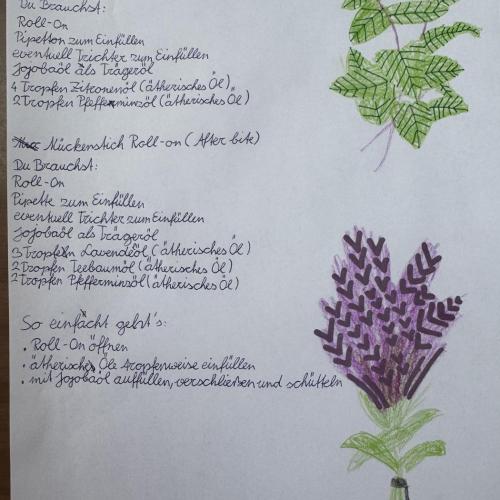 Du Brauchst:
Roll-On
Pipetton zum Einfüllen
eventuell Trichter zum Einfüllen
Jojobaöl als Trägeröl
4 Tropfen Zitronenöl (ätherisches Öl)
2 Tropfen Pfefferminzöl (ätherisches Öl)
Mückenstich Roll-on (After bite)
Du Brauchst:
Roll-On
Pipette zum Einfüllen
eventuell Trichter zum Einfüllen
Jojobaöl als Trägeröl
3 Tropfen Lavendelöl (ätherisches Öl)
2 Tropfen Teebaumöl (ätherisches Öl)
2 Tropfen Pfefferminzöl (ätherisches Öl)
So einfach geht's:
• Roll-On öffnen
• ätherische Öle tropfenweise einfüllen
• mit Jojobaöl auffüllen, verschließen und schütteln